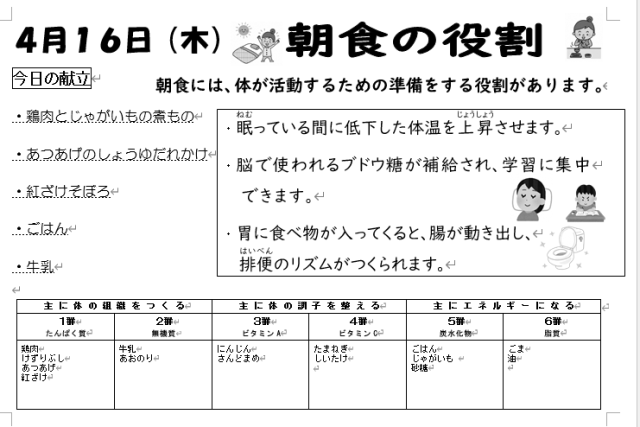 4月16日（木） 朝食の役割
今日の献立
朝食には、体が活動するための準備をする役割があります。
・鶏肉とじゃがいもの煮もの
・あつあげのしょうゆだれかけ
・紅ざけそぼろ
・ごはん
・牛乳
ねむ じょうしょう
・眠っている間に低下した体温を上昇させます。
・脳で使われるブドウ糖が補給され、学習に集中
できます。
・胃に食べ物が入ってくると、腸が動き出し、
はいべん
排便のリズムがつくられます。
主に体の組織をつくる 主に体の調子を整える 主にエネルギーになる
1群 2群 3群 4群 5群 6群
たんぱく質 無機質 ビタミンA ビタミンC 炭水化物 脂質
鶏肉 牛乳 にんじん たまねぎ ごはん ごま
けずりぶし あおのり さんどまめ しいたけ じゃがいも 油
あつあげ 砂糖
紅ざけ